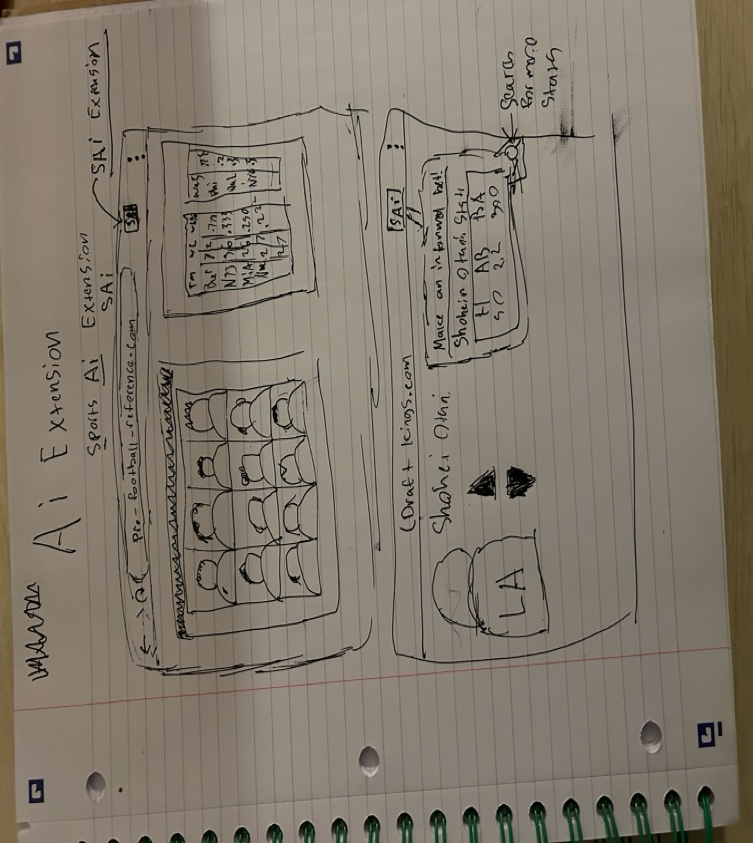 Ai Extension
Sports Ai Extension
SAi
SAi Extension
Pro-football-reference.com
SAi
Tm W L
Buf 7 2
NYJ
MiA 2 6 .250
NE 2 7 .22
Draft kings.com
SAi
Shohei Otani
LA
Make an informed bet!
Shohein Otani Stats
H AB BA
50 22 390
Search
for more
Stats